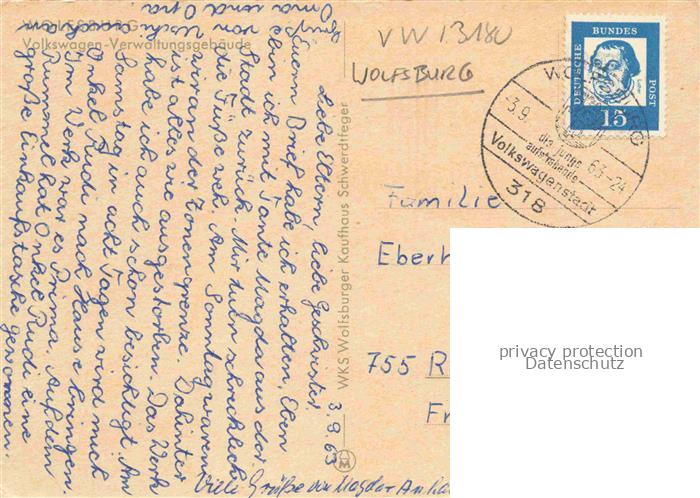 WOLFSBURG
Volkswagen-Verwaltungsgebäude
3.9.63
Liebe Eltern, liebe Geschwister,
Euern Brief habe ich erhalten. Eben
bin ich mit Tante Magda aus der
Stadt zurück. Mir tun schrecklich
die Füße weh. Am Sonntag waren
wir an der Zonengrenze. Dahinter
ist alles wie ausgestorben. Das Werk
habe ich auch schon besichtigt. Am
Samstag in acht Tagen wird mich
Onkel Rudi nach Hause bringen.
Im Werk war es Prima. Auf dem
Rummel hat Onkel Rudi eine
große Einkaufstasche gewonnen.
von Uschi
Oma und Opa
Viele Grüße von Magda
WKS Wolfsburger Kaufhaus Schwerdtfeger
VW 13180
WOLFSBURG
DEUTSCHE BUNDES POST
15
3.9.63-24
die junge
aufstrebende
Volkswagenstadt
318
Familie
Eberh
755 R
Fr
privacy protection
Datenschutz